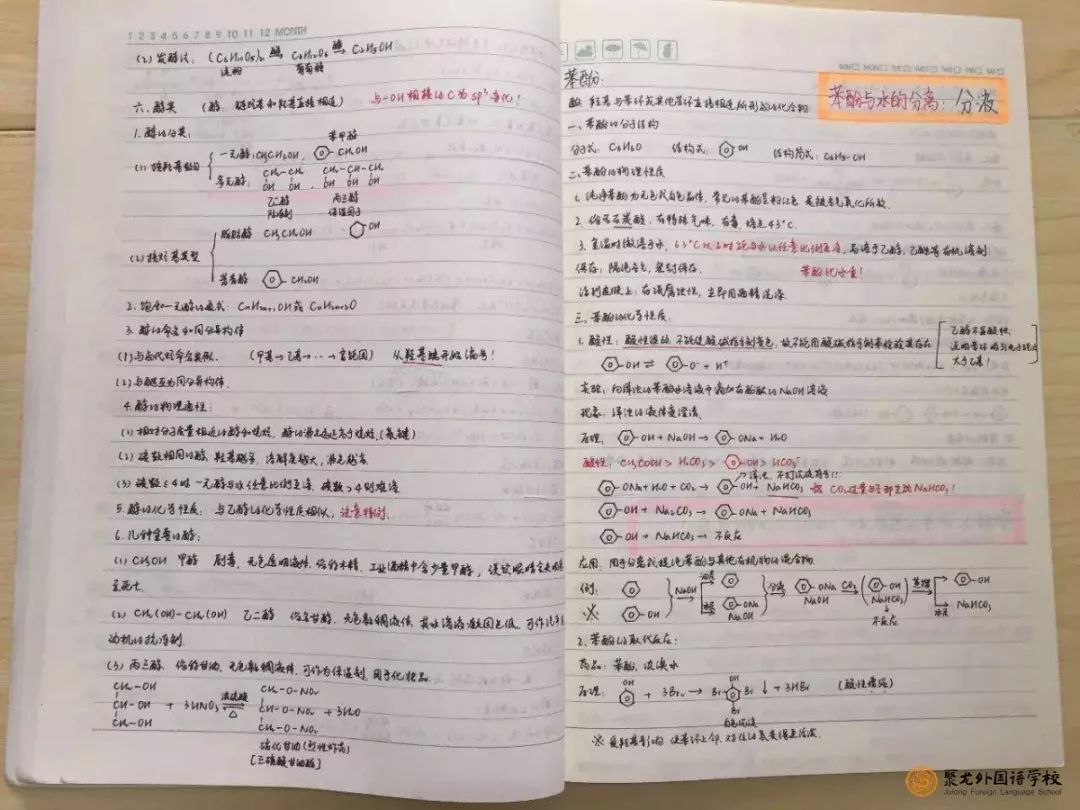 1 2 3 4 5 6 7 8 9 10 11 12 MONTH
(2) 发酵法: (C6H10O5)n 酶 C6H12O6 酶 C2H5OH
淀粉 葡萄糖
六、醇类 (醇 羟基直接相连) 与—OH相接的C为sp³杂化!
1. 醇的分类:
苯甲醇
一元醇: CH3CH2OH, CH2OH
(1) 按羟基数目
多元醇: CH2—CH2 , CH2—CH—CH2
OH OH OH OH OH
乙二醇 丙三醇
脂肪醇 CH3CH2OH OH
(2) 按烃基类型
芳香醇 CH2OH
2. 饱和一元醇的通式: CnH2n+1OH或CnH2n+2O
3. 醇的命名和同分异构体
(1) 与卤代烃命名类似. (甲基→乙基→···→官能团) 从羟基端开始编号!
(2) 与醚互为同分异构体.
4. 醇的物理通性:
(1) 相对分子质量相近的醇和烷烃, 醇的沸点远远高于烷烃. (氢键)
(2) 碳数相同的醇, 羟基越多, 溶解度越大, 沸点越高.
(3) 碳数≤4时一元醇与水任意比例互溶. 碳数>4则难溶
5. 醇的化学性质: 与乙醇的化学性质相似, 注意特例.
6. 几种重要的醇:
(1) CH3OH 甲醇 剧毒, 无色透明液体, 俗称木精, 工业酒精中含少量甲醇, 误饮眼睛会失明
至死亡.
(2) CH2(OH)—CH2(OH) 乙二醇 无色黏稠液体, 其水溶液凝固点低, 可作汽车
动机的抗冻剂.
(3) 丙三醇 俗称甘油, 无色黏稠液体, 可作为保湿剂, 用于化妆品.
CH2—OH 浓硫酸 CH2—O—NO2
CH—OH + 3HNO3 △ CH—O—NO2 + 3H2O
CH2—OH CH2—O—NO2
硝化甘油 (烈性炸药)
[三硝酸甘油酯]
苯酚:
苯酚与水的分离: 分液
酚 羟基与苯环或其他芳环直接相连所形成的化合物
一、苯酚的分子结构
分子式: C6H6O 结构式: OH 结构简式: C6H5—OH
二、苯酚的物理性质
1. 纯净苯酚为无色或白色晶体, 常见的苯酚呈粉红色 是被氧气氧化所致.
2. 俗名石炭酸, 有特殊气味, 有毒, 熔点43℃.
3. 室温时微溶于水, 65℃以上时能与水以任意比例互溶, 易溶于乙醇、乙醚等有机溶剂
保存: 隔绝空气, 密封保存. 苯酚比水重!
沾到皮肤上: 有强腐蚀性, 立即用酒精洗涤.
三、苯酚的化学性质:
1. 酸性: 酸性很弱, 不能使酸碱指示剂变色, 故不能用酸碱指示剂来检验其存在
乙醇不显酸性,
说明苯环吸引电子能力
大于乙基!
OH ⇌ O⁻ + H⁺
实验: 向浑浊的苯酚水溶液中滴加有酚酞的NaOH溶液
现象: 浑浊的液体变澄清.
原理: OH + NaOH → ONa + H2O
酸性: CH3COOH > H2CO3 > OH > HCO3⁻
浑浊, 不打沉淀符号!!
ONa + H2O + CO2 → OH + NaHCO3 CO2过量与否都生成NaHCO3!
OH + Na2CO3 → ONa + NaHCO3
OH + NaHCO3 → 不反应
应用: 用于分离或提纯苯酚与其他有机物的混合物
例: NaOH 分液 ONa CO2 OH 蒸馏 OH
※ OH ONa NaOH NaOH NaHCO3 NaHCO3
不反应
2. 苯酚的取代反应:
药品: 苯酚, 浓溴水
原理: OH + 3Br2 → Br OH Br ↓ + 3HBr (酸性增强)
Br
白色沉淀
※ 受羟基影响 使苯环上邻、对位的氢变得更活泼.
聚龙外国语学校
Julong Foreign Language School